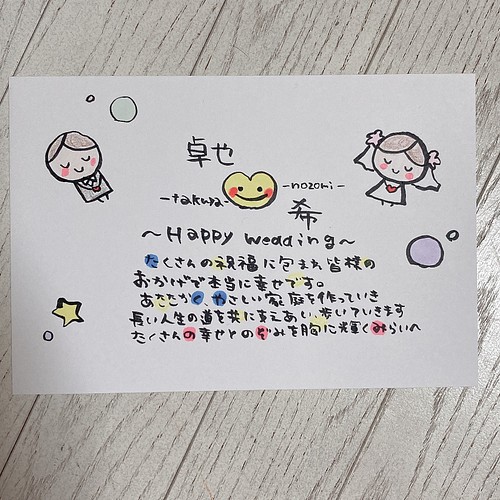 卓也
-takuya-
-nozomi-
希
～Happy wedding～
たくさんの祝福に包まれ皆様の
おかげで本当に幸せです。
あたたかく、やさしい家庭を作っていき
長い人生の道を共にささえあい、歩いていきます
たくさんの幸せとのぞみを胸に輝くみらいへ